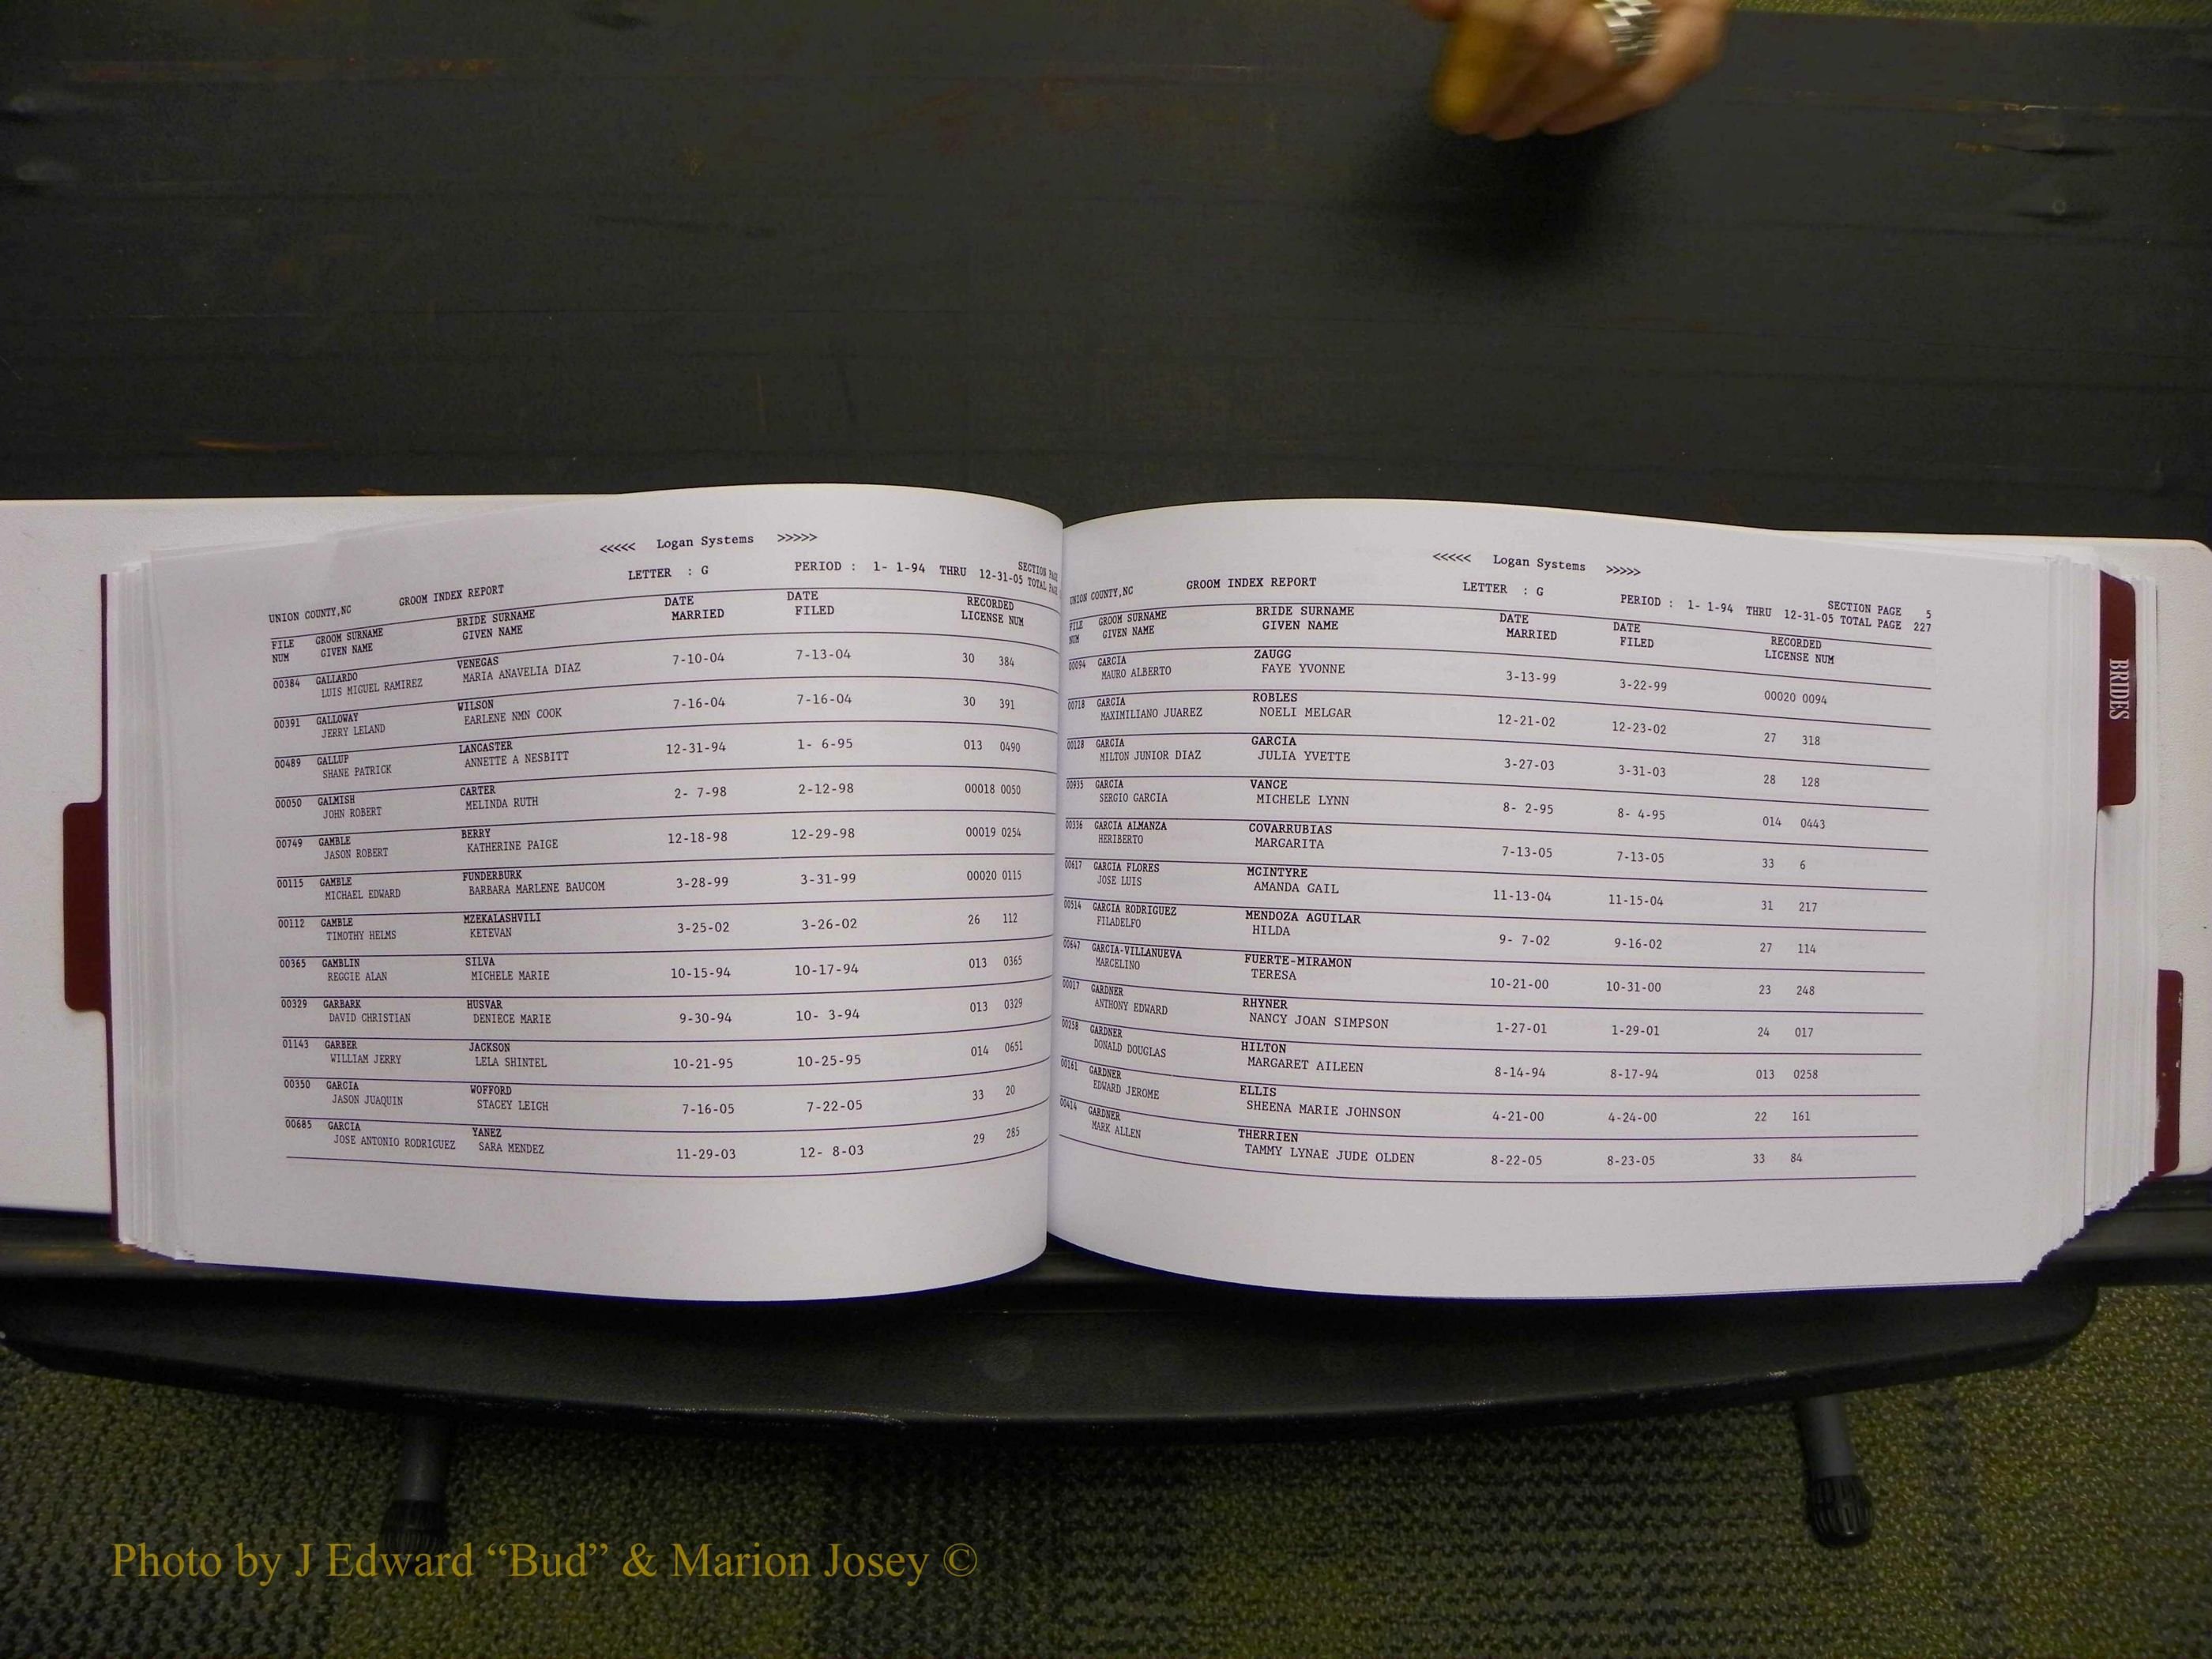 <<<<< Logan Systems >>>>>
UNION COUNTY,NC GROOM INDEX REPORT LETTER : G PERIOD : 1- 1-94 THRU 12-31-05 SECTION
TOTAL
FILE GROOM SURNAME BRIDE SURNAME DATE DATE RECORDED
NUM GIVEN NAME GIVEN NAME MARRIED FILED LICENSE NUM
00384 GALLARDO VENEGAS 7-10-04 7-13-04 30 384
LUIS MIGUEL RAMIREZ MARIA ANAVELIA DIAZ
00391 GALLOWAY WILSON 7-16-04 7-16-04 30 391
JERRY LELAND EARLENE NMN COOK
00489 GALLUP LANCASTER 12-31-94 1- 6-95 013 0490
SHANE PATRICK ANNETTE A NESBITT
00050 GALMISH CARTER 2- 7-98 2-12-98 00018 0050
JOHN ROBERT MELINDA RUTH
00749 GAMBLE BERRY 12-18-98 12-29-98 00019 0254
JASON ROBERT KATHERINE PAIGE
00115 GAMBLE FUNDERBURK 3-28-99 3-31-99 00020 0115
MICHAEL EDWARD BARBARA MARLENE BAUCOM
00112 GAMBLE MZEKALASHVILI 3-25-02 3-26-02 26 112
TIMOTHY HELMS KETEVAN
00365 GAMBLIN SILVA 10-15-94 10-17-94 013 0365
REGGIE ALAN MICHELE MARIE
00329 GARBARK HUSVAR 9-30-94 10- 3-94 013 0329
DAVID CHRISTIAN DENIECE MARIE
01143 GARBER JACKSON 10-21-95 10-25-95 014 0651
WILLIAM JERRY LELA SHINTEL
00350 GARCIA WOFFORD 7-16-05 7-22-05 33 20
JASON JUAQUIN STACEY LEIGH
00685 GARCIA YANEZ 11-29-03 12- 8-03 29 285
JOSE ANTONIO RODRIGUEZ SARA MENDEZ
<<<<< Logan Systems >>>>>
UNION COUNTY,NC GROOM INDEX REPORT LETTER : G PERIOD : 1- 1-94 THRU 12-31-05 SECTION PAGE 5
TOTAL PAGE 227
FILE GROOM SURNAME BRIDE SURNAME DATE DATE RECORDED
NUM GIVEN NAME GIVEN NAME MARRIED FILED LICENSE NUM
00094 GARCIA ZAUGG 3-13-99 3-22-99 00020 0094
MAURO ALBERTO FAYE YVONNE
00718 GARCIA ROBLES 12-21-02 12-23-02 27 318
MAXIMILIANO JUAREZ NOELI MELGAR
00128 GARCIA GARCIA 3-27-03 3-31-03 28 128
MILTON JUNIOR DIAZ JULIA YVETTE
00935 GARCIA VANCE 8- 2-95 8- 4-95 014 0443
SERGIO GARCIA MICHELE LYNN
00336 GARCIA ALMANZA COVARRUBIAS 7-13-05 7-13-05 33 6
HERIBERTO MARGARITA
00617 GARCIA FLORES MCINTYRE 11-13-04 11-15-04 31 217
JOSE LUIS AMANDA GAIL
00514 GARCIA RODRIGUEZ MENDOZA AGUILAR 9- 7-02 9-16-02 27 114
FILADELFO HILDA
00647 GARCIA-VILLANUEVA FUERTE-MIRAMON 10-21-00 10-31-00 23 248
MARCELINO TERESA
00017 GARDNER RHYNER 1-27-01 1-29-01 24 017
ANTHONY EDWARD NANCY JOAN SIMPSON
00258 GARDNER HILTON 8-14-94 8-17-94 013 0258
DONALD DOUGLAS MARGARET AILEEN
00161 GARDNER ELLIS 4-21-00 4-24-00 22 161
EDWARD JEROME SHEENA MARIE JOHNSON
00414 GARDNER THERRIEN 8-22-05 8-23-05 33 84
MARK ALLEN TAMMY LYNAE JUDE OLDEN
BRIDES
Photo by J Edward “Bud” & Marion Josey ©